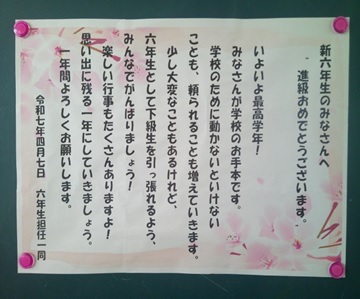 新六年生のみなさんへ
進級おめでとうございます。
いよいよ最高学年！
みなさんが学校のお手本です。
学校のために動かないといけない
ことも、頼られることも増えていきます。
少し大変なこともあるけれど、
六年生として下級生を引っ張れるよう、
みんなでがんばりましょう！
楽しい行事もたくさんありますよ！
思い出に残る一年にしていきましょう。
一年間よろしくお願いします。
令和七年四月七日　六年生担任一同